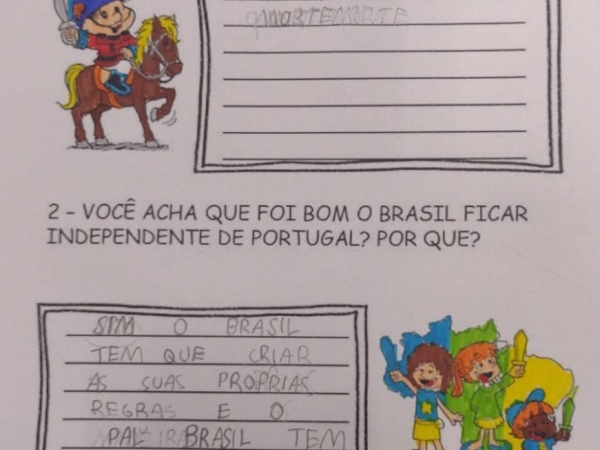 2 - VOCÊ ACHA QUE FOI BOM O BRASIL FICAR
INDEPENDENTE DE PORTUGAL? POR QUE?
SIM O BRASIL
TEM QUE CRIAR
AS SUAS PRÓPRIAS
REGRAS E O
BRASIL TEM